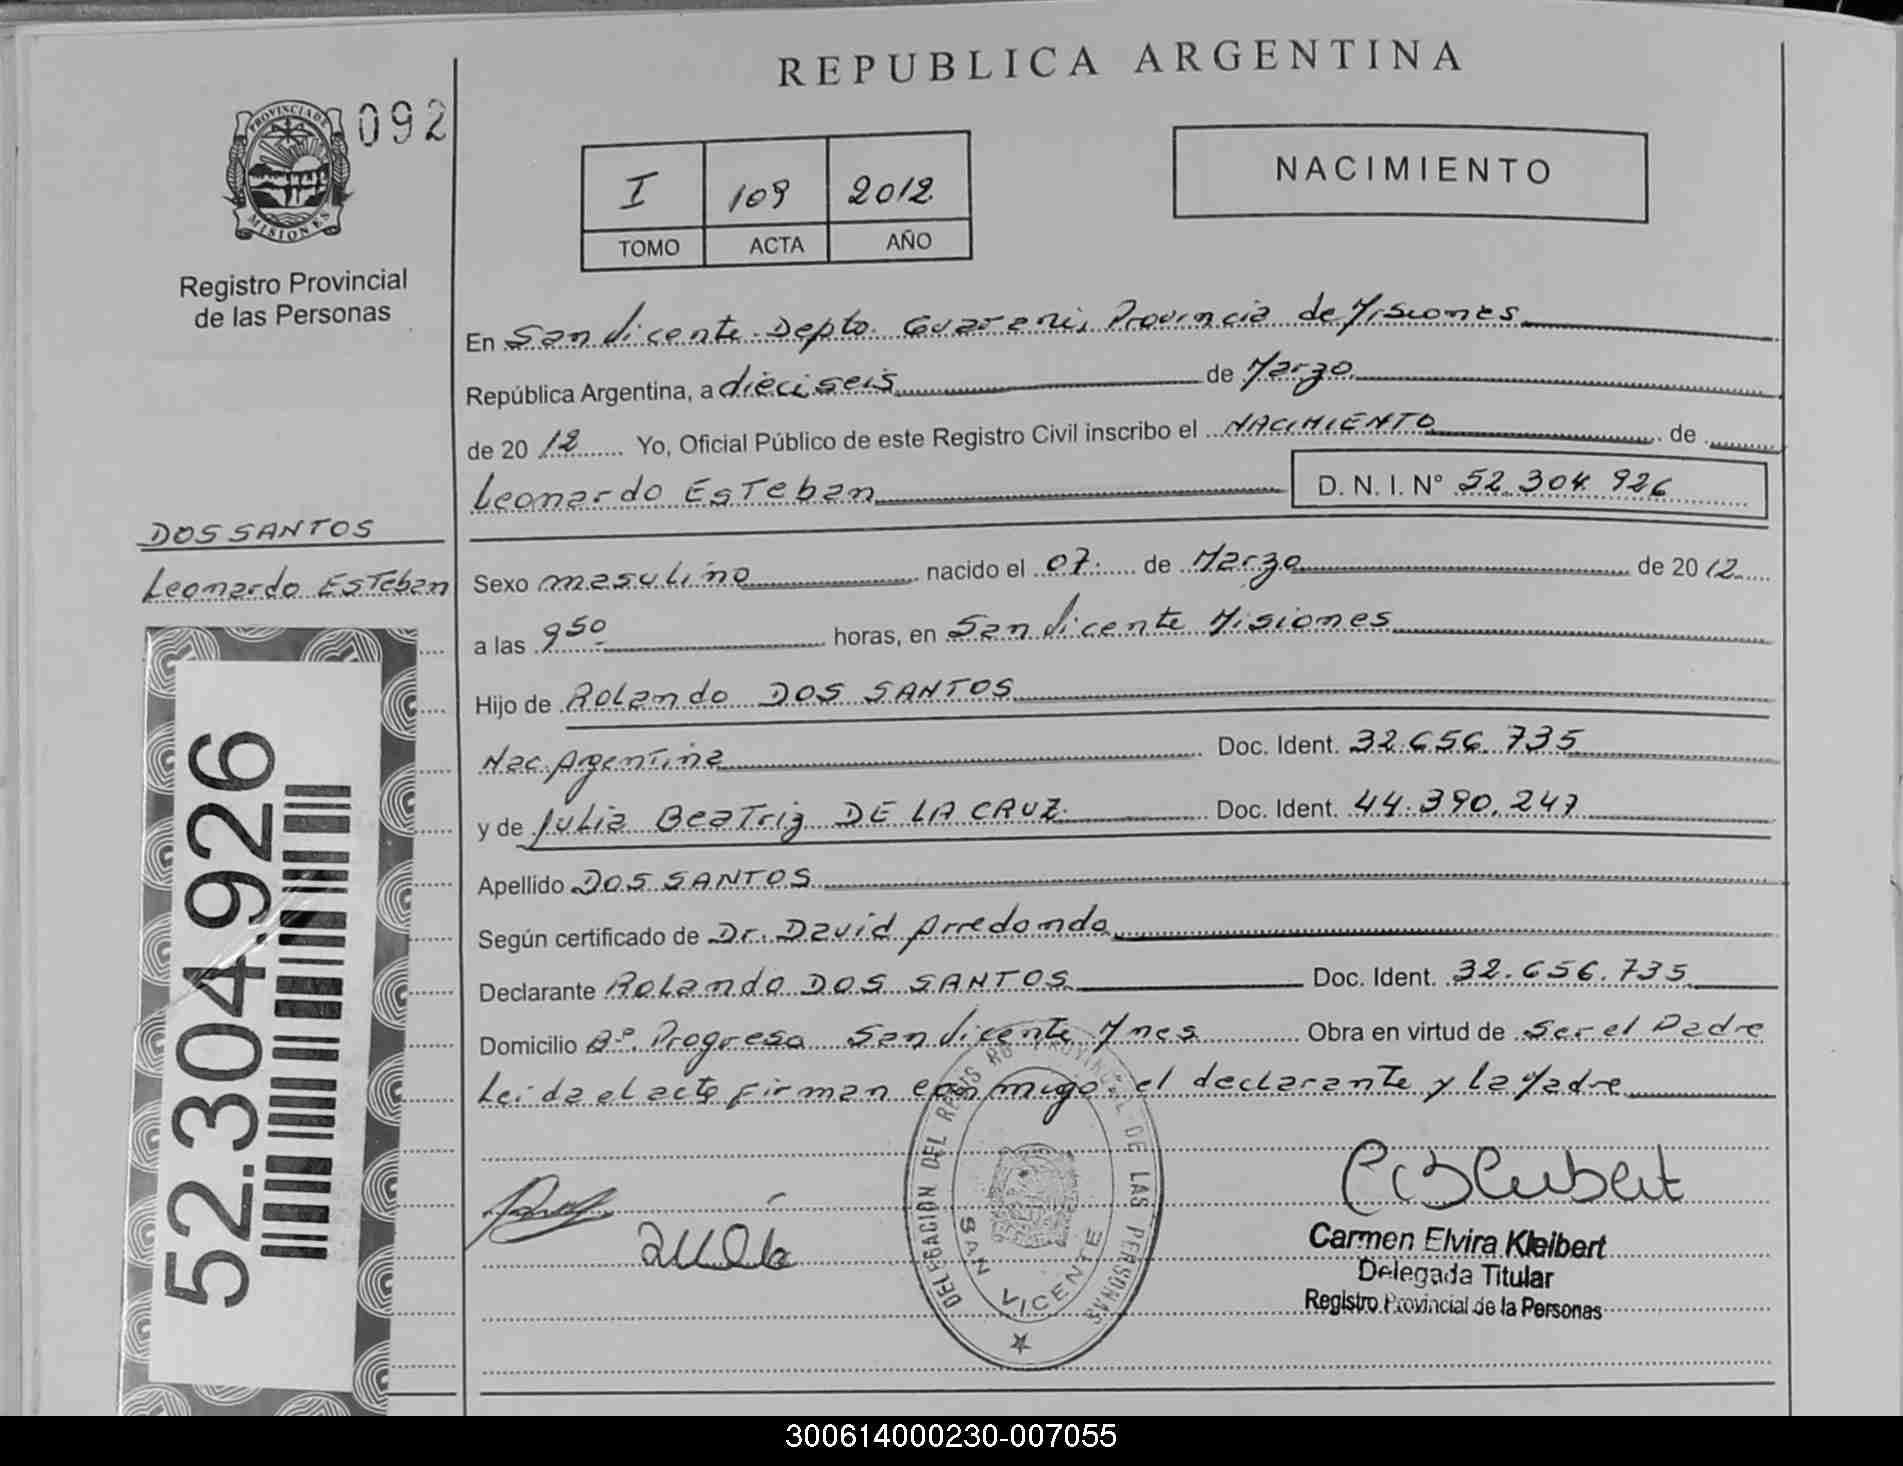 REPUBLICA ARGENTINA
092
PROVINCIA DE
MISIONES
Registro Provincial
de las Personas
I 109 2012
TOMO ACTA AÑO
NACIMIENTO
En San Vicente Depto. Guarani, Provincia de Misiones
República Argentina, a dieciseis de Marzo
de 20 12 Yo, Oficial Público de este Registro Civil inscribo el NACIMIENTO de
Leonardo Esteban D. N. I. N° 52.304.926
DOS SANTOS
Leonardo Esteban
52.304.926
Sexo masculino nacido el 07 de Marzo de 20 12
a las 9 50 horas, en San Vicente Misiones
Hijo de Rolando DOS SANTOS
Nac. Argentina Doc. Ident. 32.656.735
y de Julia Beatriz DE LA CRUZ Doc. Ident. 44.390.247
Apellido DOS SANTOS
Según certificado de Dr. David Arredondo
Declarante Rolando DOS SANTOS Doc. Ident. 32.656.735
Domicilio B° Progreso San Vicente Mnes Obra en virtud de Ser el Padre
Leida el acta firman conmigo el declarante y la Madre
DELEGACION DEL REGIS RO PROVINCIAL DE LAS PERSONAS
SAN VICENTE
Carmen Elvira Kleibert
Delegada Titular
Registro Provincial de la Personas
300614000230-007055